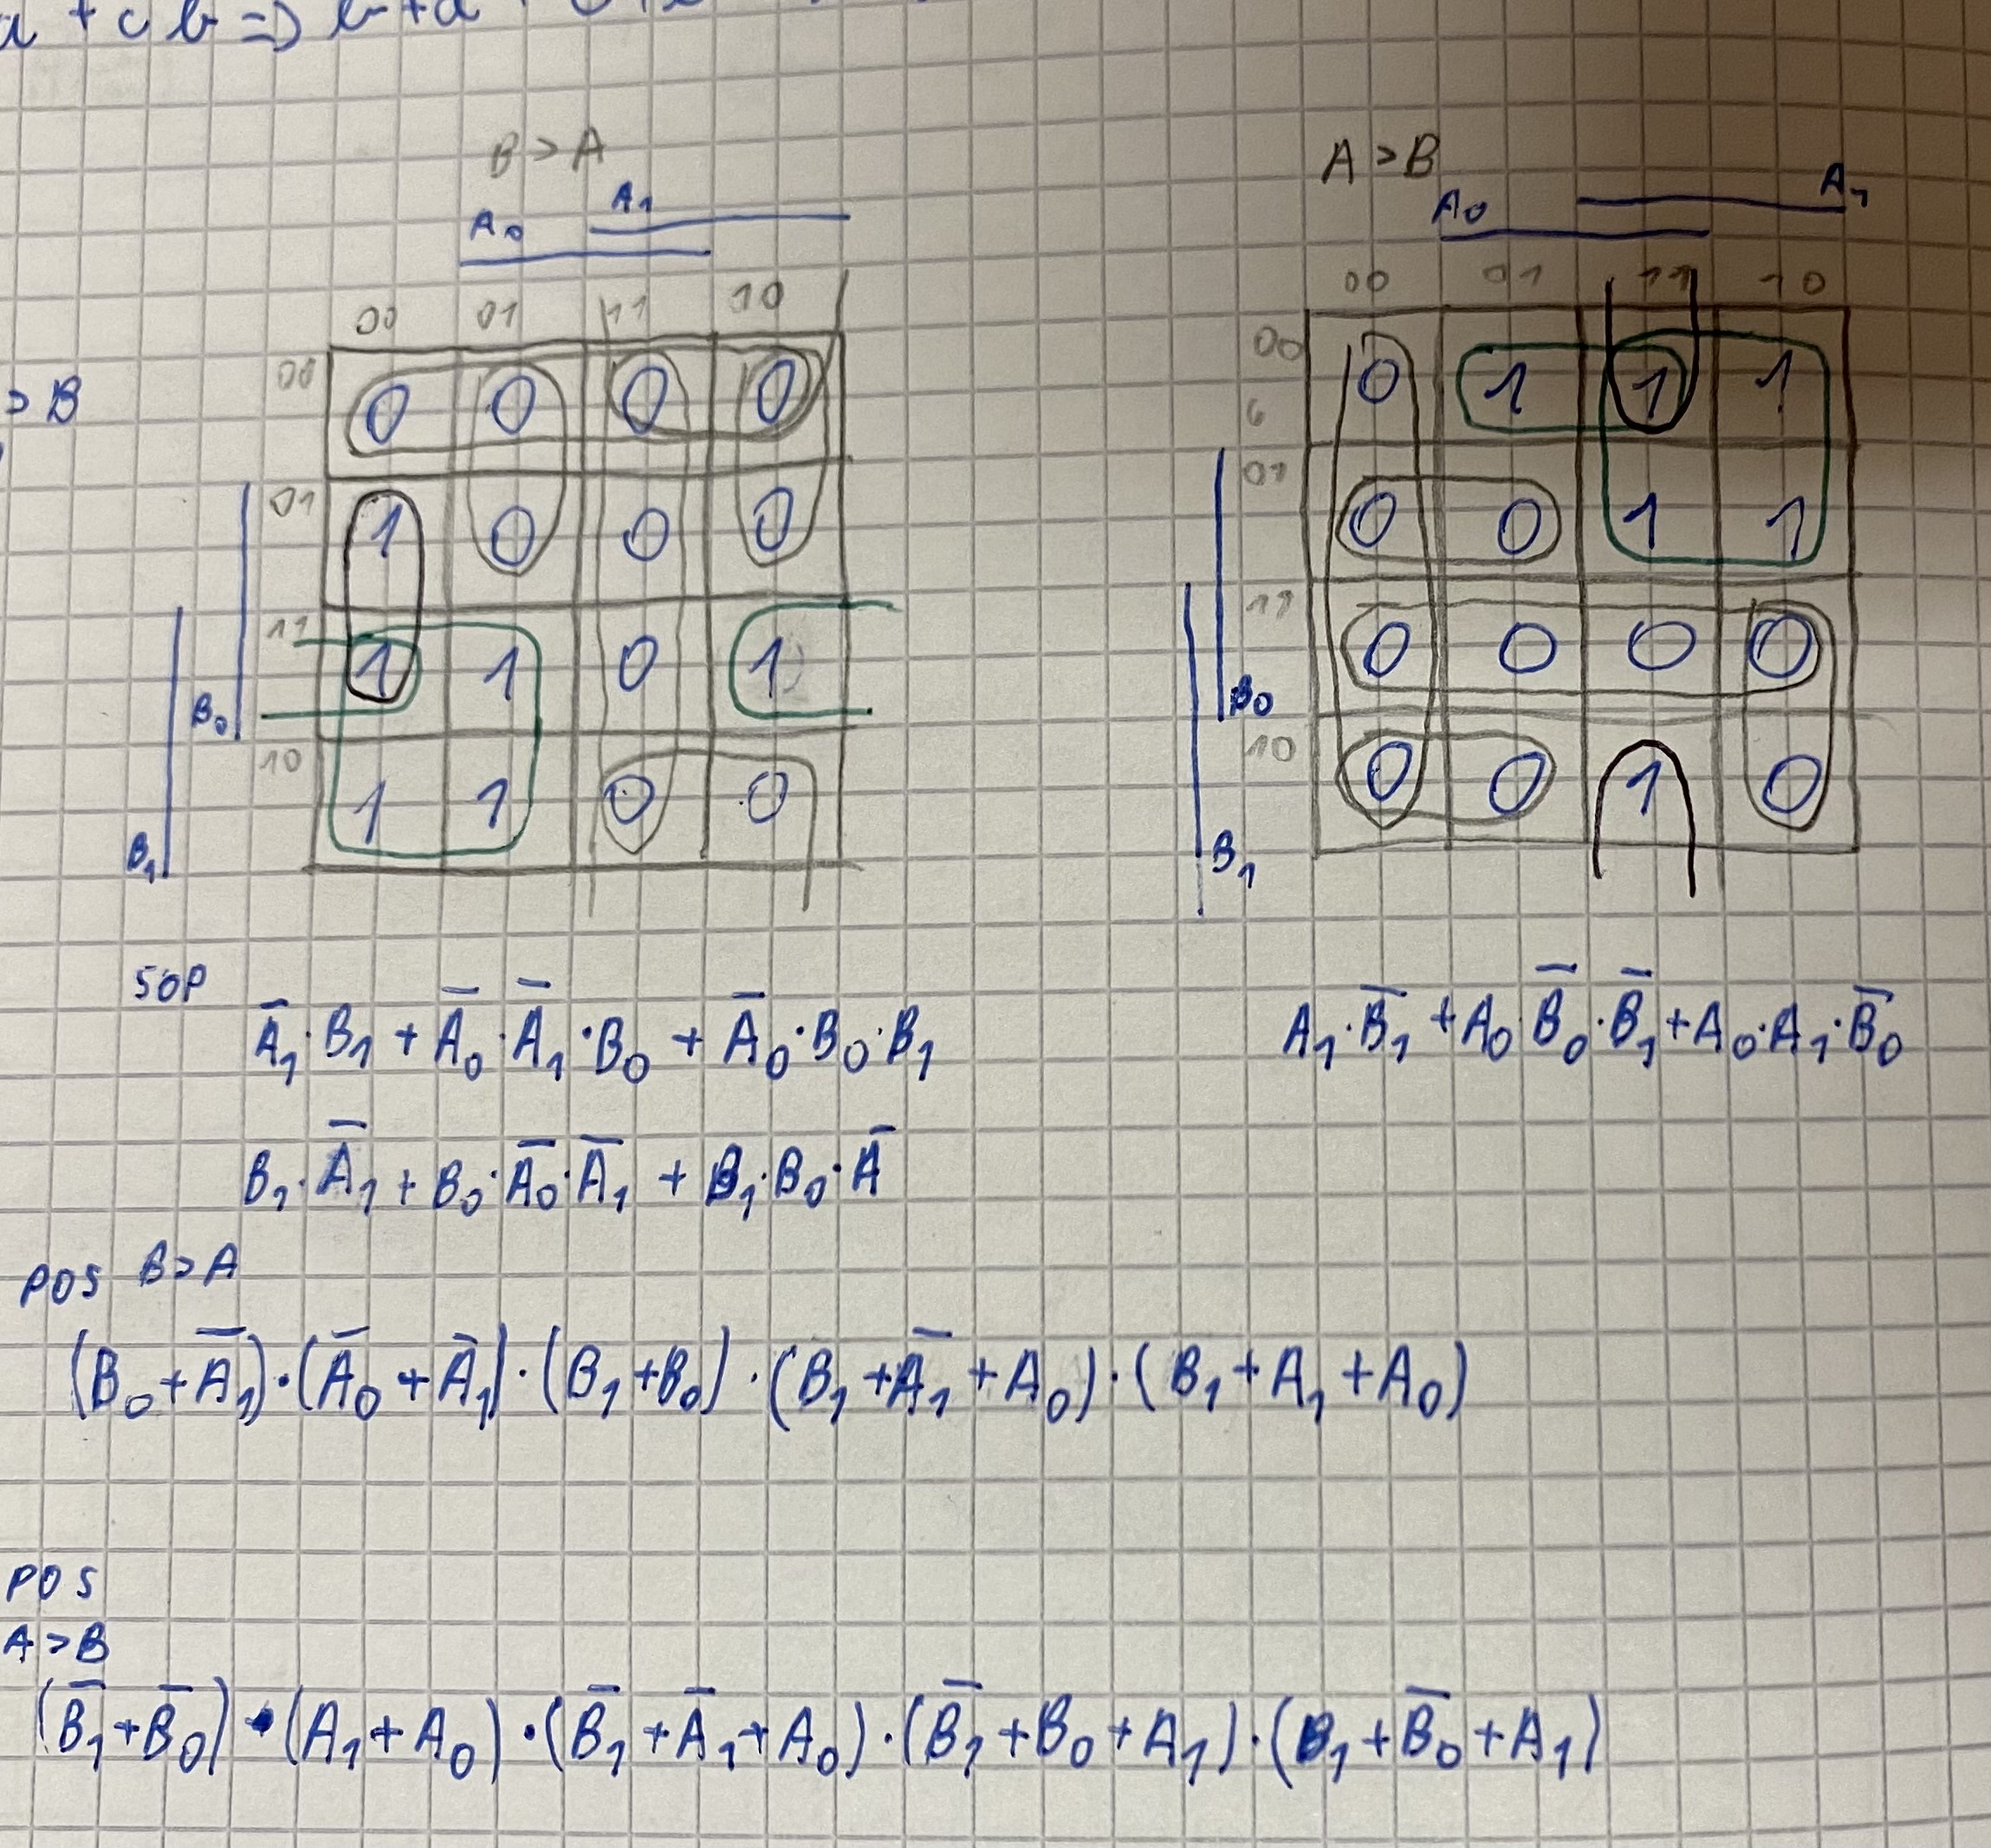 B > A
A₁
A₀
00 01 11 10
00 0 0 0 0
01 1 0 0 0
11 1 1 0 1
10 1 1 0 0
B₀
B₁
> B
A > B
A₁
A₀
00 01 11 10
00 0 1 1 1
01 0 0 1 1
11 0 0 0 0
10 0 0 1 0
B₀
B₁
SOP
A̅₁·B₁ + A̅₀·A̅₁·B₀ + A̅₀·B₀·B₁
A₁·B̅₁ + A₀·B̅₀·B̅₁ + A₀·A₁·B̅₀
B₁·A̅₁ + B₀·A̅₀·A̅₁ + B₁·B₀·A̅
POS B > A
(B₀ + A̅₁)·(A̅₀ + A̅₁)·(B₁ + B₀)·(B₁ + A̅₁ + A₀)·(B₁ + A₁ + A₀)
POS
A > B
(B̅₁ + B̅₀)·(A₁ + A₀)·(B̅₁ + A̅₁ + A₀)·(B̅₁ + B₀ + A₁)·(B₁ + B̅₀ + A₁)